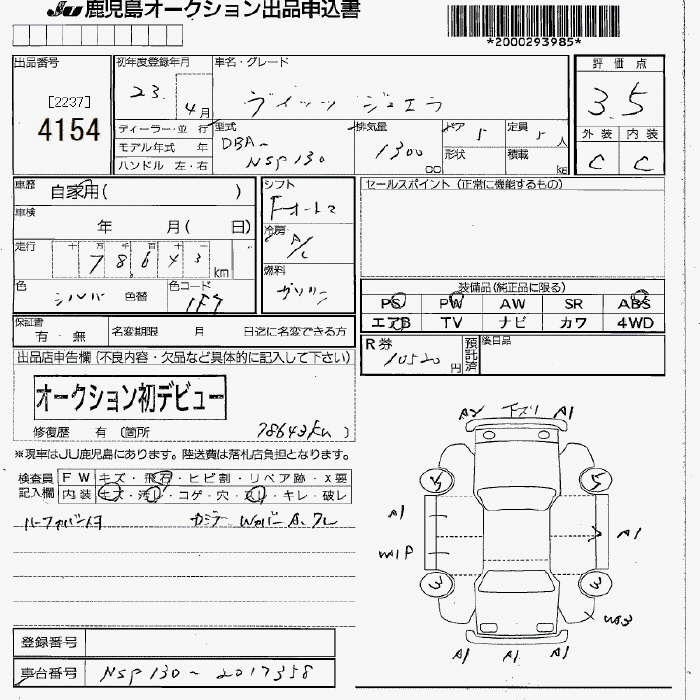 JU 鹿児島オークション出品申込書
*2000293985*
出品番号 初年度登録年月 車名・グレード 評価点
[2237] 23. 4月 ヴィッツ ジュエラ 3.5
4154
ディーラー・並行 型式 DBA- 排気量 ドア 5 定員 5 人 外装 内装
モデル年式 年 NSP130 1300 cc 形状 積載 kg C C
ハンドル 左・右
車歴 自家用( ) シフト セールスポイント (正常に機能するもの)
車検 年 月( 日) 冷房 A/C
走行 十 万 千 百 十 78,643 km
燃料 ガソリン
色 シルバー 色替 色コード 1F7
装備品(純正品に限る)
PS PW AW SR ABS
エアB TV ナビ カワ 4WD
保証書 有・無 名変期限 月 日迄に名変できる方
R券 10520 円 預託済 後日品
出品店申告欄 (不良内容・欠品など具体的に記入して下さい)
オークション初デビュー
修復歴 有 〔箇所 78643km 〕
※現車はJU鹿児島にあります。陸送費は落札店負担となります。
検査員記入欄 FW キズ・飛石・ヒビ割・リペア跡・X要
内装 キズ・汚れ・コゲ・穴・スレ・キレ・破レ
A2 下ズリ A1
5 5
A1 A1
W1P
3 3
W3
A1 A1 A1
登録番号
車台番号 NSP130-2017358